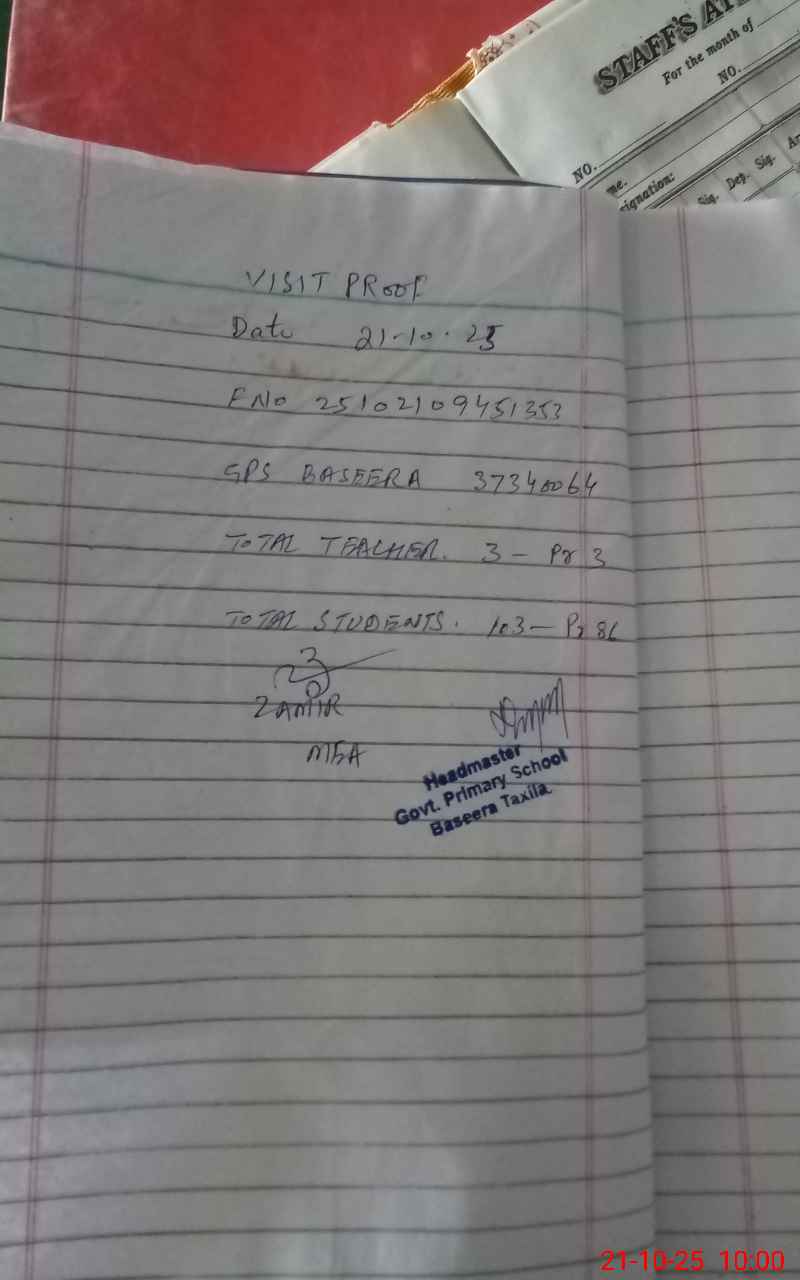 STAFF'S AT
For the month of
NO.
NO.
me.
signation:
Sig. Dep. Sig. Ar
VISIT PROOF
Date 21-10-25
F No 25102109451353
GPS BASEERA 37340064
TOTAL TEACHER. 3 - Pr 3
TOTAL STUDENTS. 103 - Pr 86
ZAMIR
MEA
Headmaster
Govt. Primary School
Baseera Taxila.
21-10-25 10:00